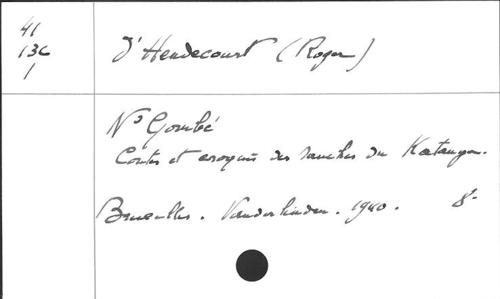 41
13C
1
d'Hendecourt (Roger)
N'Gombé
Contes et croquis des ranches du Katanga.
Bruxelles. Vanderlinden. 1940. 8°